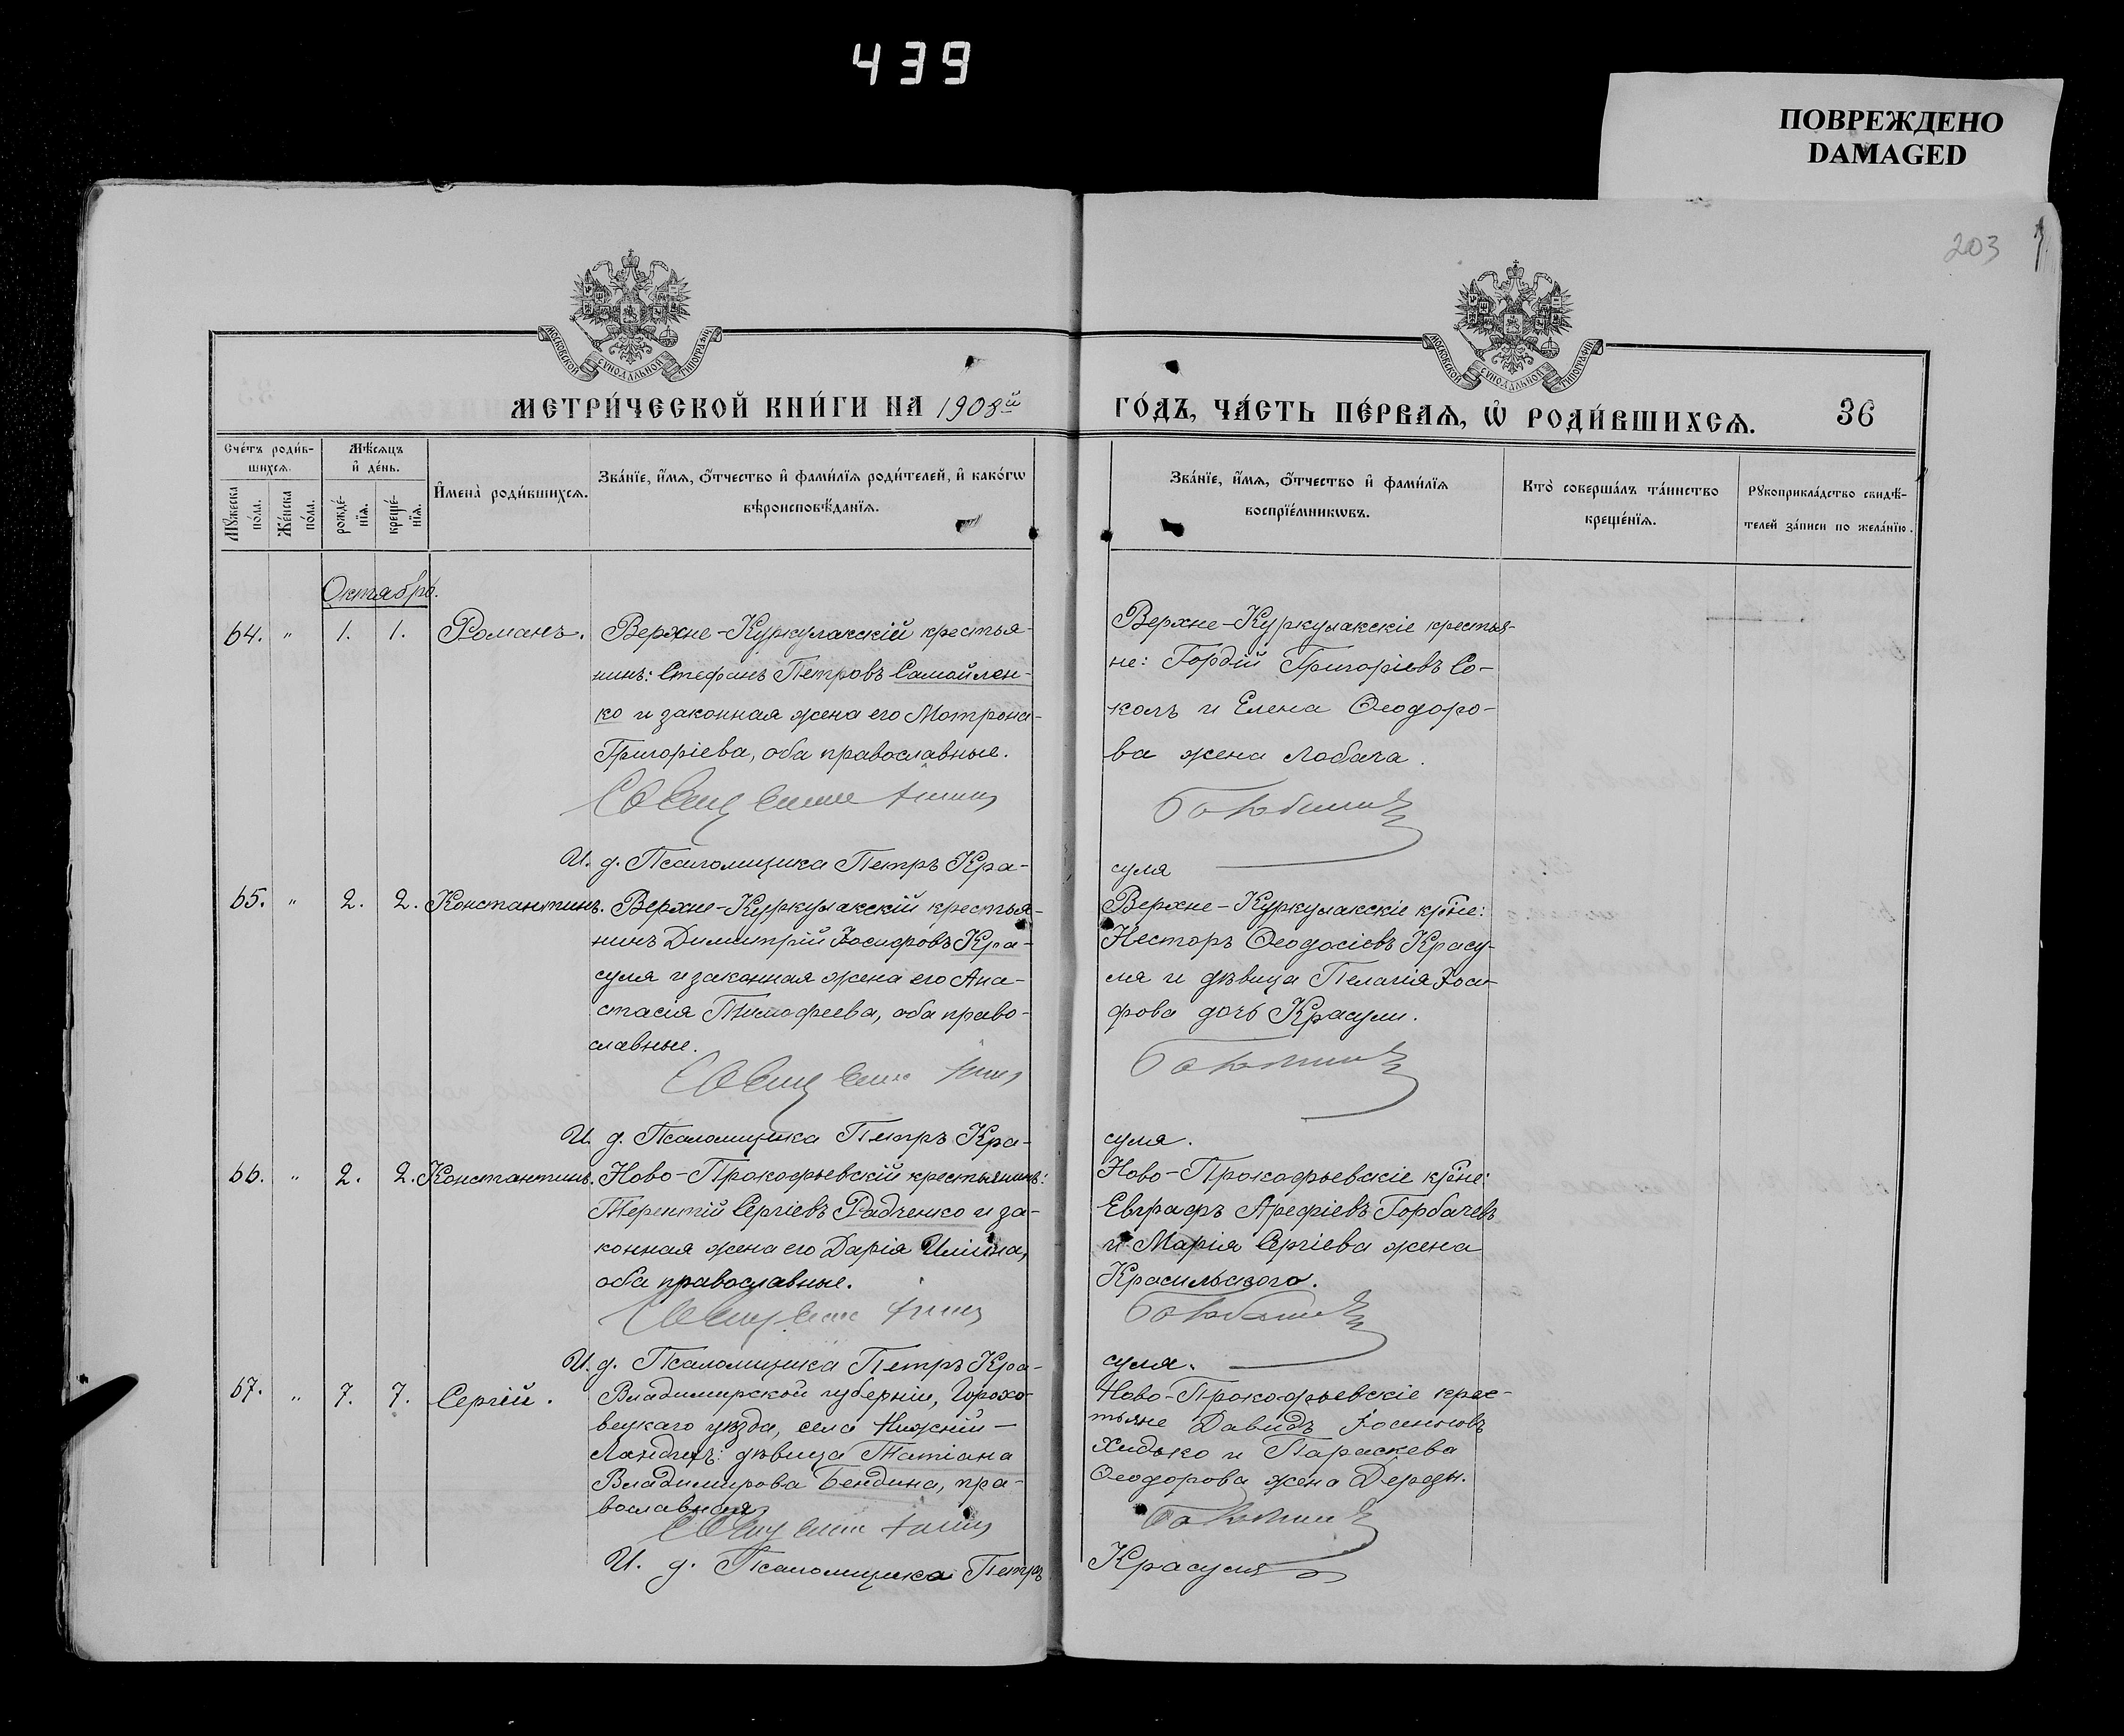 439
ПОВРЕЖДЕНО
DAMAGED
203
МОСКОВСКОЙ СѴНОДАЛЬНОЙ ТИПОГРАФІИ
МОСКОВСКОЙ СѴНОДАЛЬНОЙ ТИПОГРАФІИ
МЕТРИ́ЧЕСКОЙ КНИ́ГИ НА 1908й
ГО́ДЪ, ЧА́СТЬ ПЕ́РВАѦ, Ѡ҆ РОДИ́ВШИХСѦ. 36
Сче́тъ роди́в-
шихсѧ.
Мꙋ́жеска по́ла.
Же́нска по́ла.
Мѣ́сѧцъ
и҆ де́нь.
рожде́-
нїѧ.
креще́-
нїѧ.
И҆мена̀ роди́вшихсѧ.
Зва́нїе, и҆́мѧ, ѻ҆́тчество и҆ фами́лїѧ роди́телей, и҆ како́гѡ
вѣроисповѣ́данїѧ.
Зва́нїе, и҆́мѧ, ѻ҆́тчество и҆ фами́лїѧ
воспрїе́мникѡвъ.
Кто̀ соверша́лъ та́инство
креще́нїѧ.
Рꙋкоприкла́дство свидѣ́-
телей за́писи по жела́нїю.
Октябрь.
64. " 1. 1. Романъ. Верхне-Куркулакскій крестья-
нинъ: Стефанъ Петровъ Самойлен-
ко и законная жена его Мотрона
Григоріева, оба православные.
Верхне-Куркулакскіе крестья-
не: Гордій Григоріевъ Со-
колъ и Елена Ѳеодоро-
ва жена Лобача.
Священникъ
И. д. Псаломщика Петръ Кра-
суля
65. " 2. 2. Константинъ. Верхне-Куркулакскій крестья-
нинъ Димитрій Іосифовъ Кра-
суля и законная жена его Ана-
стасія Тимофеева, оба право-
славные.
Верхне-Куркулакскіе кр-не:
Несторъ Ѳеодосіевъ Красу-
ля и дѣвица Пелагія Іоси-
фова дочь Красули.
Священникъ
И. д. Псаломщика Петръ Кра-
суля.
66. " 2. 2. Константинъ. Ново-Прокофьевскій крестьянинъ:
Терентій Сергіевъ Радченко и за-
конная жена его Дарія Иліина,
оба православные.
Ново-Прокофьевскіе кр-не:
Евграфъ Арефіевъ Горбачевъ
и Марія Сергіева жена
Красильскаго.
Священникъ
И. д. Псаломщика Петръ Кра-
суля.
67. " 7. 7. Сергій. Владимирской губерніи, Горохо-
вецкаго уѣзда, села Нижній-
Ландехъ: дѣвица Татіана
Владимирова Бендина, пра-
вославная
Ново-Прокофьевскіе крес-
тьяне Давидъ
Хидько и Параскева
Ѳеодорова жена Дерезы.
Священникъ
И. д. Псаломщика Петръ
Красуля